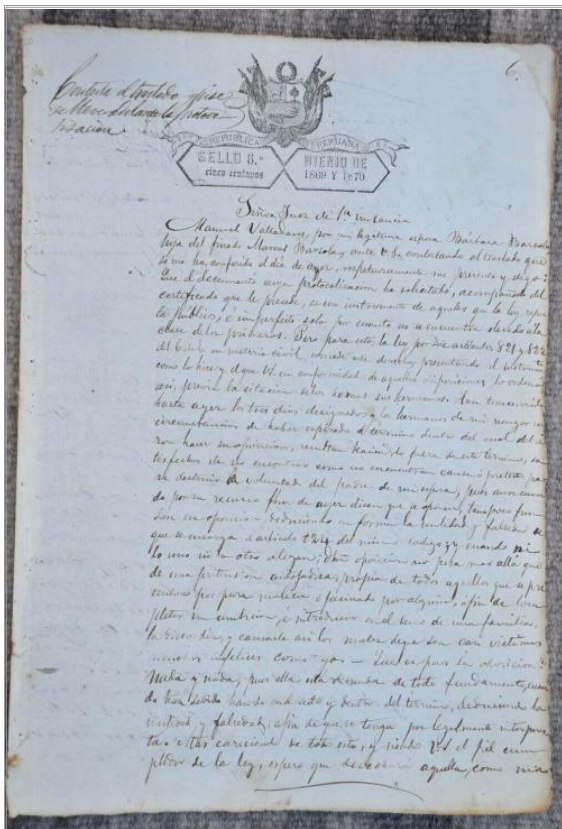 6.
Contesta el traslado y pide
se lleve adelante la protoco
lizacion
REPUBLICA PERUANA
SELLO 6.º BIENIO DE
cinco centavos 1869 Y 1870
Señor Juez de 1ª instancia
Manuel Valladares, por mi legitima esposa Bárbara Barzola
hija del finado Marcos Barzola, ante V. S. contestando al traslado que
se me ha conferido el dia de ayer, respetuosamente me presento y digo:
Que el documento cuya protocolizacion he solicitado, acompañado del
certificado que le precede, es un instrumento de aquellos que la ley reputa
público, é imperfecto solo por cuanto no se encuentra elevado á la
clase de los primeros. Pero para esto, la ley por los artículos 821 y 822
del Código en materia civil, concede este derecho, presentando el
como lo hice y que V. S. en conformidad de aquellas disposiciones lo ordenó
asi, previa la citacion sus hermanos. Han transcurrido
hasta ayer los tres dias designados, y los hermanos de mi
circunstancias de haber espirado el término dentro del cual debie
ron hacer su oposicion, fuera de este término,
de no encontrar como no encuentran causa ó pretesto pa
ra destruir la voluntad del padre de mi esposa; pues aun cuan
do por su recurso de ayer dicen que se oponen, tampoco fun
dan su oposicion, deduciendo en forma la nulidad y falsedad de
que se encarga el artículo 824 del mismo codigo; y cuando ni
lo uno ni lo otro alegan; dicha oposicion no pasa mas allá que
de una pretension antojadiza, propia de todos aquellos que se
por pura malicia por alguno, afin de
su ambicion, é introducir en el seno de una familia,
la discordia, y causarle asi los males que son
infelices como yo. — Que es pues la oposicion?
Nada y nada, pues ella está desnuda de todo fundamento, cuan
do han debido hacerlo dentro del termino, deduciendo la
nulidad y falsedad, afin de que se tenga por legalmente interpues
ta. Ellas carecen de todo esto, y siendo V. S. el fiel cum
plidor de la ley, espero que desechará aquella, como